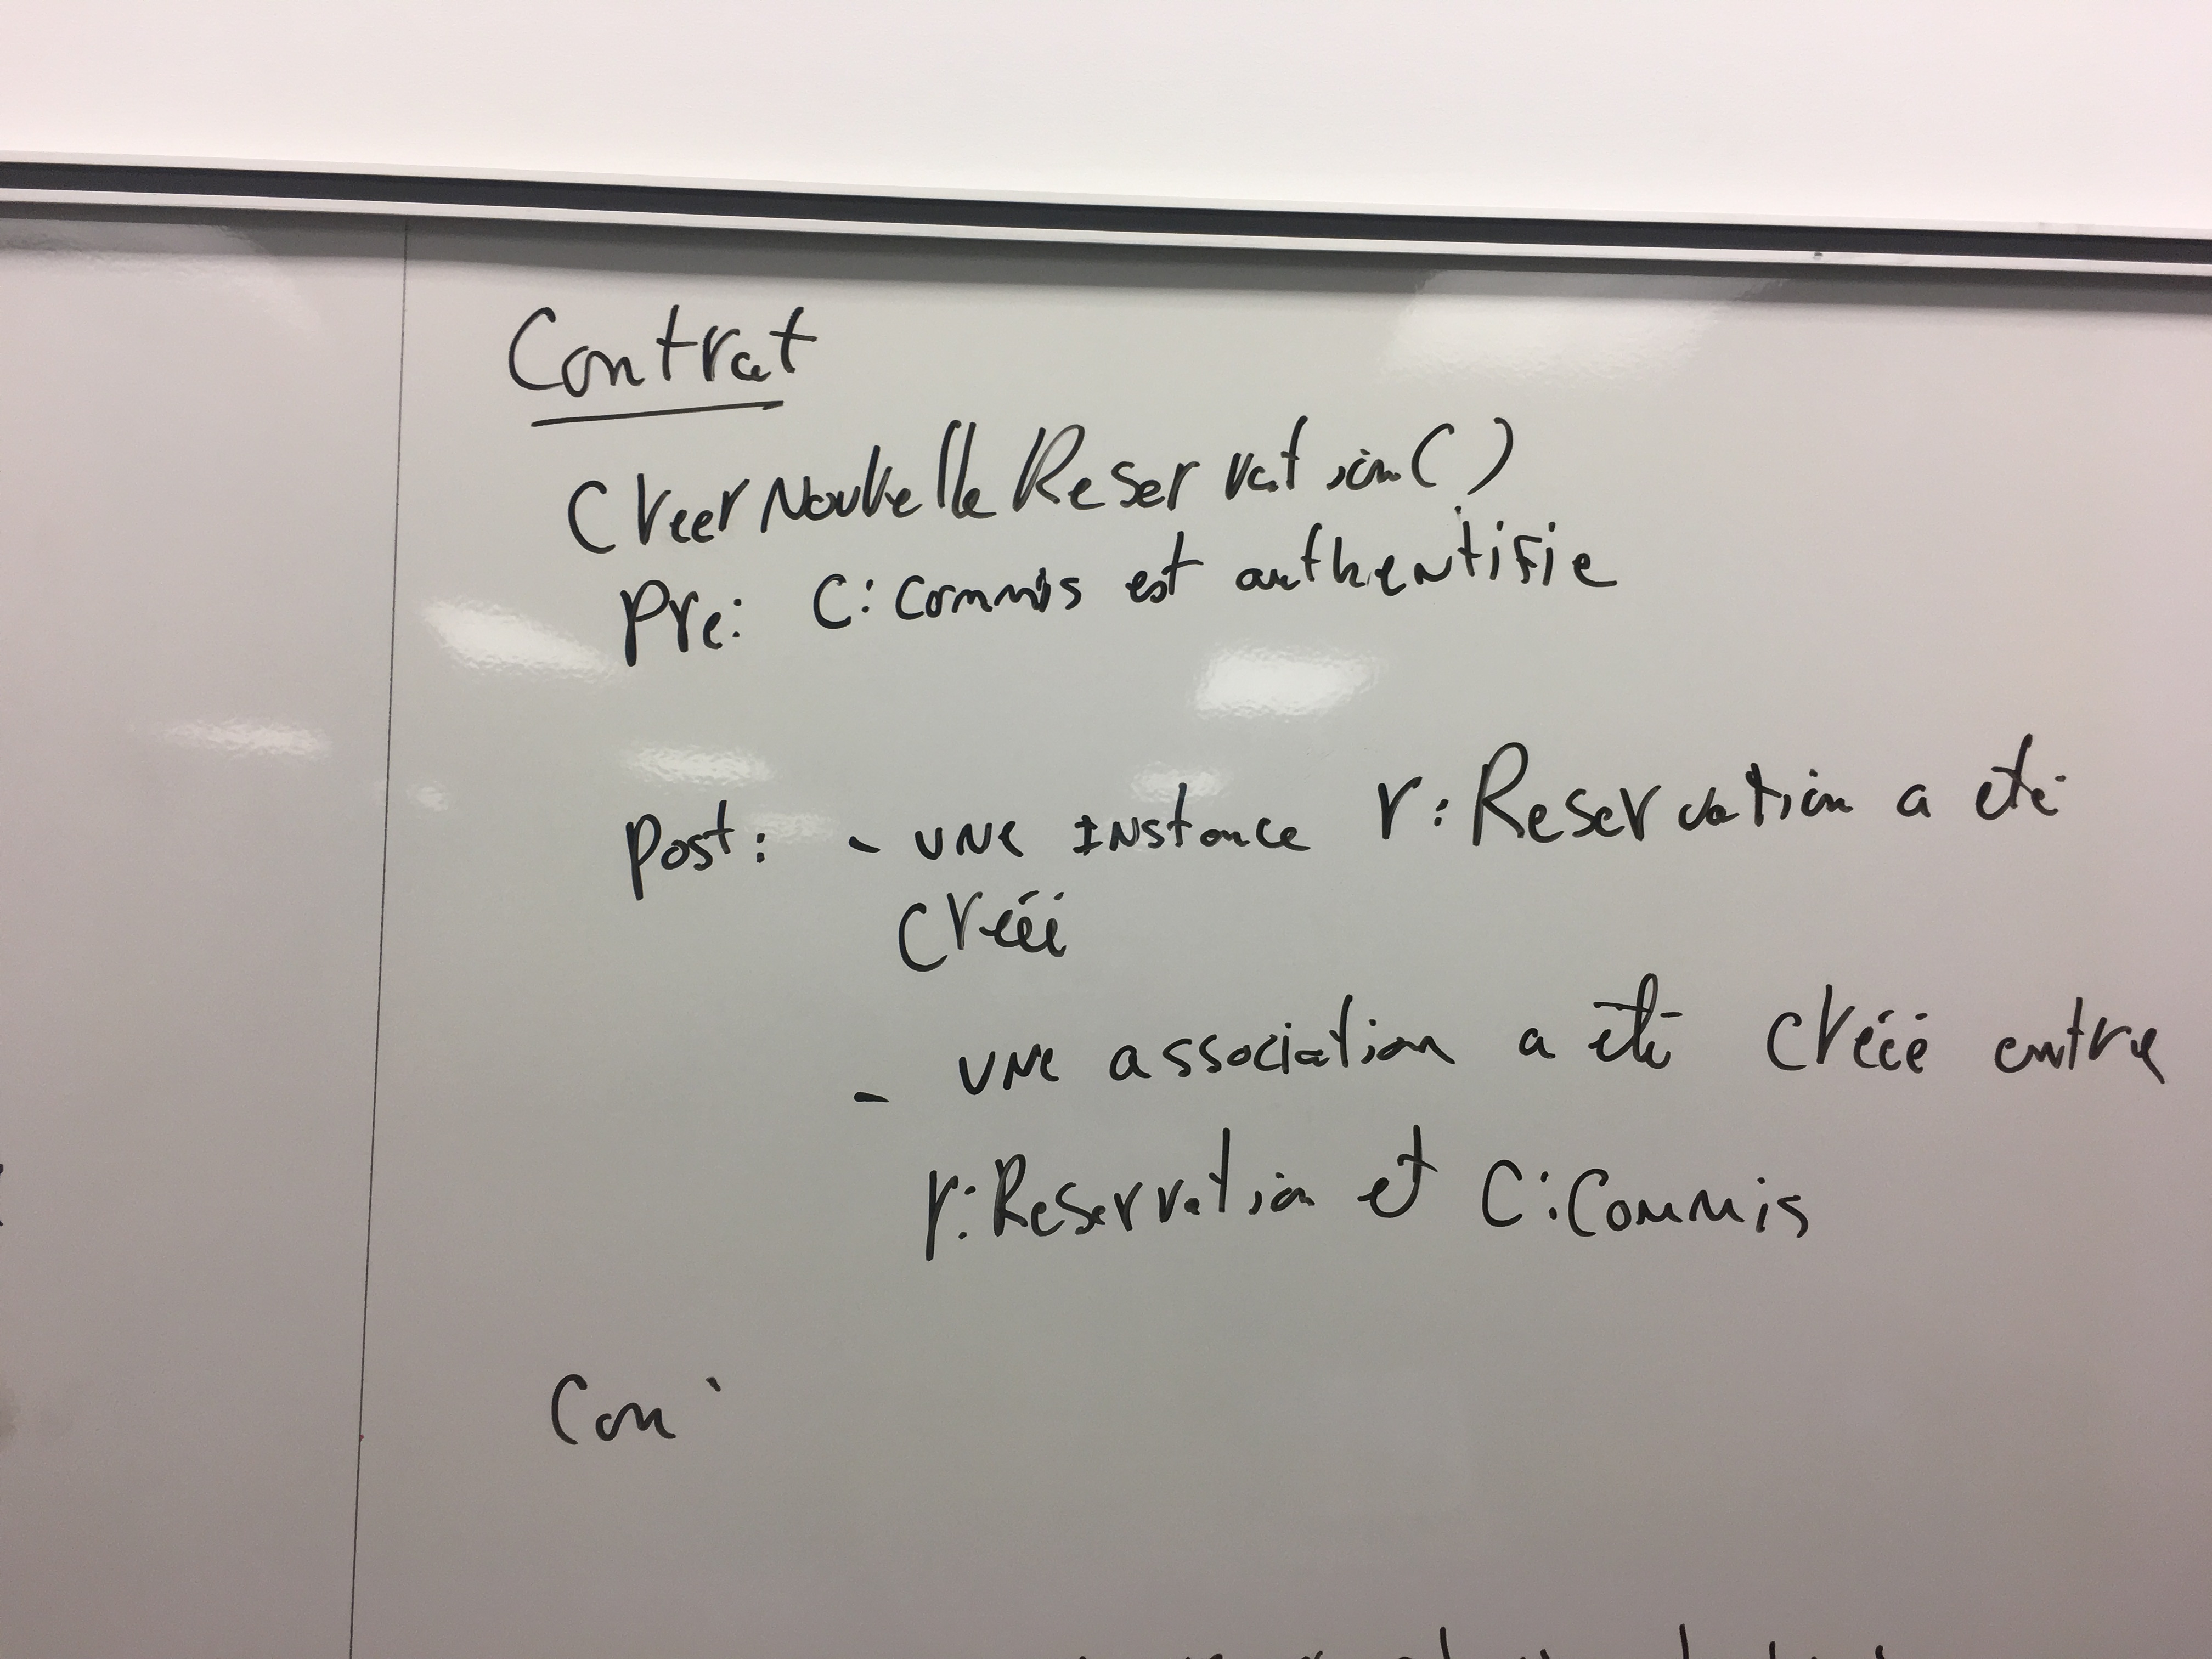 Contrat
CreerNouvelleReservation()
Pre: C:Commis est authentifie
Post: - une instance r:Reservation a été
créée
- une association a été créée entre
r:Reservation et C:Commis
Con